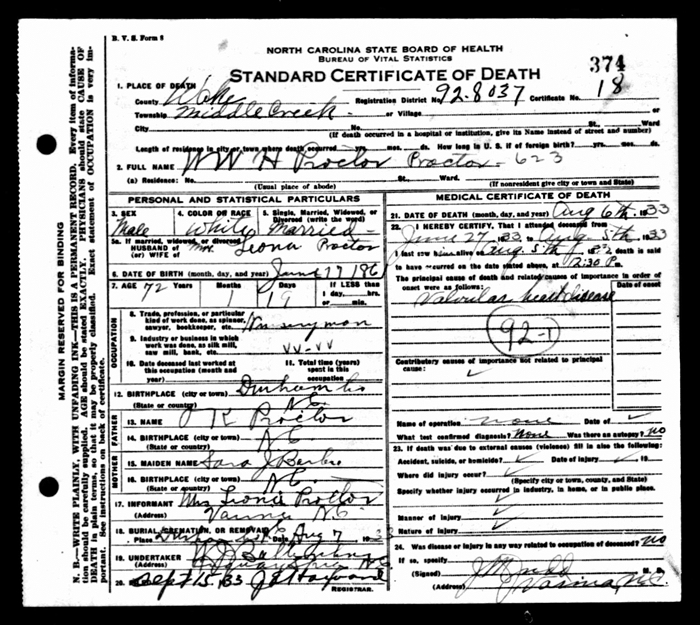 B. V. S. Form 8
NORTH CAROLINA STATE BOARD OF HEALTH
BUREAU OF VITAL STATISTICS
STANDARD CERTIFICATE OF DEATH
374
1. PLACE OF DEATH
County Wake
Registration District No. 92-8037 Certificate No. 18
Township Middle Creek or Village
City St., Ward
(If death occurred in a hospital or institution, give its Name instead of street and number)
Length of residence in city or town where death occurred yrs. mos. ds. How long in U. S. if of foreign birth? yrs. mos. ds.
2. FULL NAME W W H Proctor Proctor - 623
(a) Residence: No. St., Ward.
(Usual place of abode) (If nonresident give city or town and State)
PERSONAL AND STATISTICAL PARTICULARS
3. SEX Male
4. COLOR OR RACE White
5. Single, Married, Widowed, or Divorced (write the word) Married
5a. If married, widowed, or divorced
HUSBAND of
(or) WIFE of Mrs. Leona Proctor
6. DATE OF BIRTH (month, day, and year) June 17 186
7. AGE 72 Months 1 Days 19 If LESS than
1 day, hrs.
or min.
OCCUPATION
8. Trade, profession, or particular
kind of work done, as spinner,
sawyer, bookkeeper, etc. Nurseryman
9. Industry or business in which
work was done, as silk mill,
saw mill, bank, etc. VV-VV
10. Date deceased last worked at
this occupation (month and
year)
11. Total time (years)
spent in this
occupation
12. BIRTHPLACE (city or town) Durham Co
(State or country) N.C.
FATHER
13. NAME K Proctor
14. BIRTHPLACE (city or town) N C
(State or country)
MOTHER
15. MAIDEN NAME Sara J
16. BIRTHPLACE (city or town) N C
(State or country)
17. INFORMANT Mrs Leonie Proctor
(Address) Varina N.C.
18. BURIAL, CREMATION, OR REMOVAL
Place Date Aug 7 19
19. UNDERTAKER
(Address) N C
20. Sept 15 33 J E Hayward
REGISTRAR.
MEDICAL CERTIFICATE OF DEATH
21. DATE OF DEATH (month, day, and year) Aug 6th 1933
22. I HEREBY CERTIFY, That I attended deceased from
June 27, 1933, to Aug 5th, 1933
I last saw him alive on Aug 5th, 1933, death is said
to have occurred on the date stated above, at 2:30 P m.
The principal cause of death and related causes of importance in order of
onset were as follows:
Date of onset
Valvular heart disease
92-1
Contributory causes of importance not related to principal
cause:
Name of operation none Date of
What test confirmed diagnosis? None Was there an autopsy? no
23. If death was due to external causes (violence) fill in also the following:
Accident, suicide, or homicide? Date of injury 19
Where did injury occur?
(Specify city or town, county, and State)
Specify whether injury occurred in industry, in home, or in public place.
Manner of injury
Nature of injury
24. Was disease or injury in any way related to occupation of deceased? no
If so, specify
(Signed) J M Judd M. D.
(Address) Varina N.C.
MARGIN RESERVED FOR BINDING
N. B.—WRITE PLAINLY, WITH UNFADING INK—THIS IS A PERMANENT RECORD. Every item of information should be carefully supplied. AGE should be stated EXACTLY. PHYSICIANS should state CAUSE OF DEATH in plain terms, so that it may be properly classified. Exact statement of OCCUPATION is very important. See instructions on back of certificate.